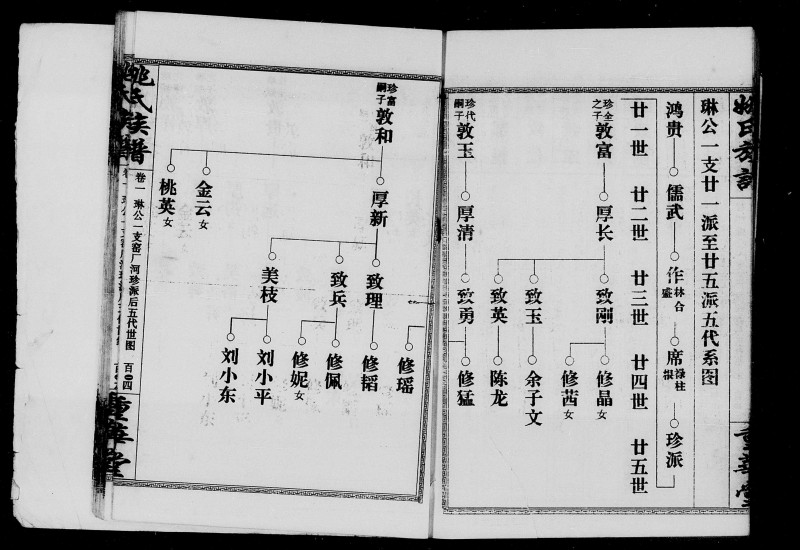 姚氏族谱
重华堂
琳公一支廿一派至廿五派五代系图
鸿贵
儒武
作
林合
盛
席
禄柱
银
珍派
廿一世
廿二世
廿三世
廿四世
廿五世
珍全
之子
敦富
厚长
致刚
修晶女
修茜女
致玉
余子文
致英
陈龙
珍代
嗣子
敦玉
厚清
致勇
修猛
修瑶
珍富
嗣子
敦和
厚新
致理
修韬
致兵
修佩
修妮女
美枝
刘小平
刘小东
金云女
桃英女
姚氏族谱
卷一
琳公一支窑厂河珍派后五代世图
百〇四
重华堂